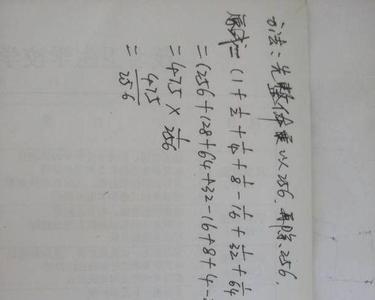 方法:先整体乘以256,再除256.
原式=(1+1/2+1/4+1/8-1/16+1/32+1/64
=(256+128+64+32-16+8+4-
=475×1/256
=475/256